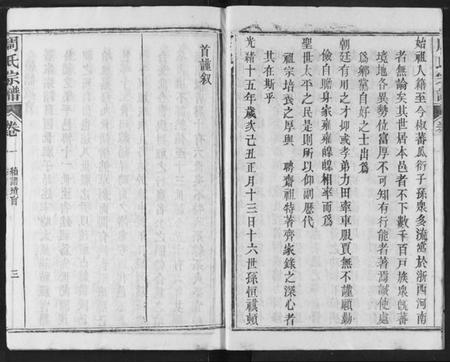 始祖人籍至今椒蕃瓜衍子孫衆多流寓於浙西河南
者無論矣其世居本邑者不下數千百戸族衆旣蕃
境地各異勢位富厚不可知有行能者著為誠使處
為鄉黨自好之士出為
朝廷有用之才抑或孝弟力田牽車服賈無不謹顧勤
儉自贍身家雍雍皞皞相率而為
聖世太平之民是則所以仰副歷代
祖宗培養之厚與 聘齋祖特著齊家錄之深心者
其在斯乎
光緒十五年歲次己丑正月十三日十六世孫恒祺頓
首謹叙
周氏宗譜
卷一
三